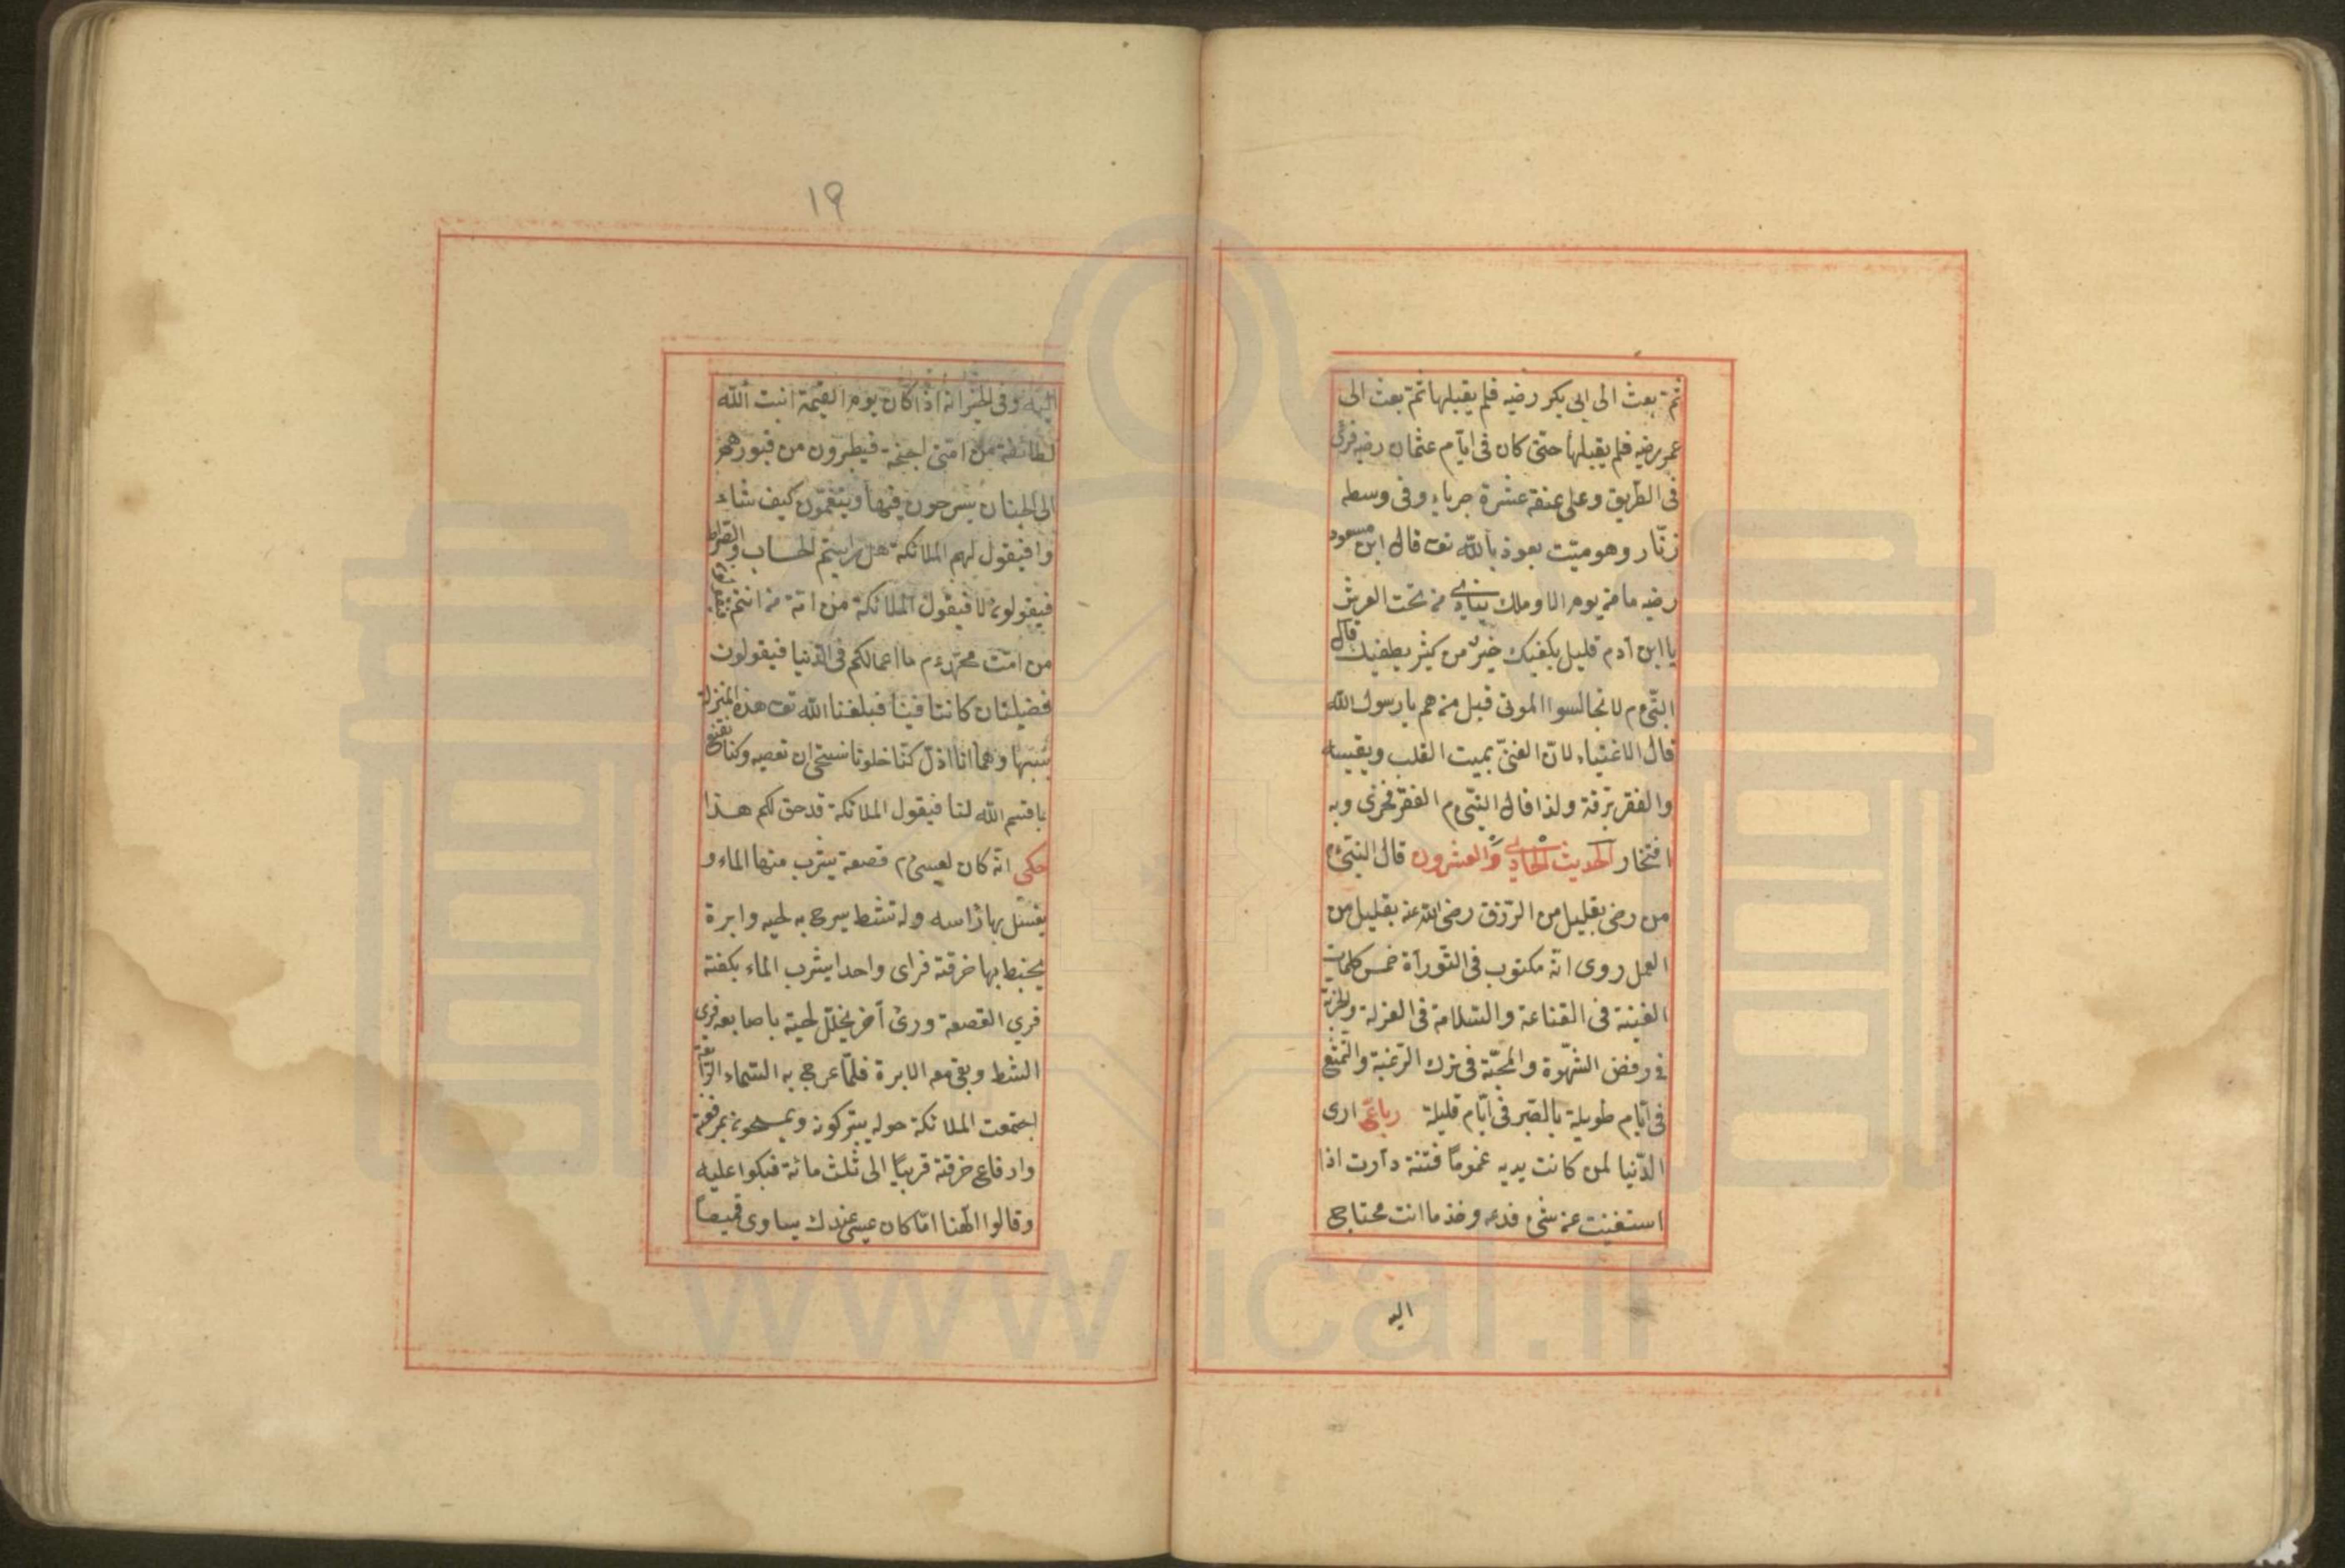 ثمّ بعث الى ابى بكر رضيه فلم يقبلها ثمّ بعث الى
عمر رضيه فلم يقبلها حتّى كان فى ايّام عثمان رضيه فرئى
فى الطّريق وعلى عنقه عشرة جرباء وفى وسطه
زنّار وهو ميّت بعوذ بالله تعـ قال ابن مسعود
رضيه ما من يوم الا وملك ينادى من تحت العرش
يا ابن آدم قليل يكفيك خير من كثير يطغيك قال
النّبىّ م لا تجالسوا الموتى قيل من هم يا رسول الله
قال الاغنياء لانّ الغنىّ يميت القلب ويقسيه
والفقر برقة ولذا قال النّبىّ م الفقر فخرى وبه
افتخار الحديث الحادى والعشرون قال النّبىّ م
من رضى بقليل من الرّزق رضى الله عنه بقليل من
العمل روى انّه مكتوب فى التّورآة خمس كلمات
الغينة فى القناعة والسّلامة فى العزلة والحرّية
فى رفض الشّهوة والمحبّة فى ترك الرّغبة والتّمتّع
فى ايّام طويلة بالصّبر فى ايّام قليلة رباعىّ ارى
الدّنيا لمن كانت يديه غموماً فتنة دآرت اذا
استغنيت عن شىء فدعه وخذ ما انت محتاج
اليه
١٩
اليه وفى الخبر انه اذا كان يوم القيمة انبت الله
لطائفة من امّتى اجنحة فيطيرون من قبورهم
الى الجنان يسرحون فيها ويتنعّمون كيف شاء
وا فيقول لهم الملائكة هل رايتم الحساب والصّراط
فيقولون لا فيقول الملائكة من امّة من انتم
من امّت محمّد م ما اعمالكم فى الدّنيا فيقولون
فضيلتان كانتا فينا فبلغنا الله تعـ هذه المنزلة
بسببها وهما انا اذا كنّا خلونا نستحى ان نعصيه وكنا نقنع
با قسم الله لنا فيقول الملائكة قد حق لكم هذا
حكى انّه كان لعيسى م قصعة يشرب منها الماء و
يغسل بها رأسه وله شط يسرح به لحيه وابرة
يخيط بها خرقته فراى واحدا يشرب الماء بكفّه
فرمى القصعة ورئ آخر يخلّل لحيته باصابعه فرمى
الشط وبقى معه الابرة فلمّا عرج به السّماء الرّابعة
اجتمعت الملائكة حوله يتبركونه ويمسحون بمرقعته
وارقاع خرقته قريبًا الى ثلث مائة فبكوا عليه
وقالوا الهنا امّا كان عيسى عندك يساوى قميصاً